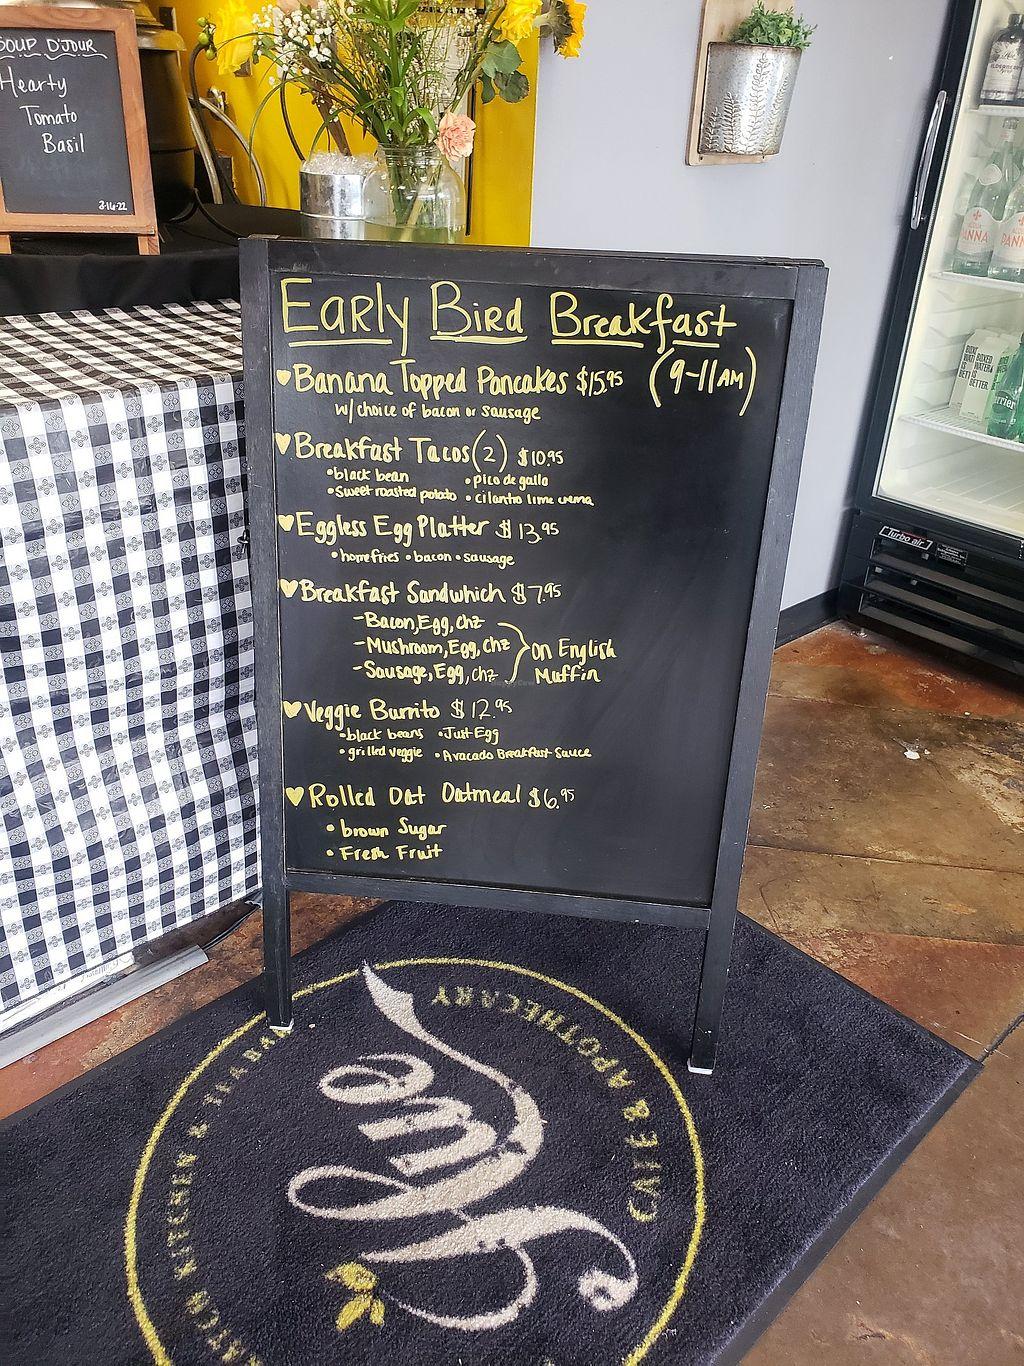 SOUP D'JOUR
Hearty
Tomato
Basil
3-16-22
Early Bird Breakfast
(9-11AM)
Banana Topped Pancakes $15.95
w/ choice of bacon or sausage
Breakfast Tacos (2) $10.95
•black bean •pico de gallo
•Sweet roasted potato •cilantro lime crema
Eggless Egg Platter $13.95
•homefries •bacon •sausage
Breakfast Sandwhich $7.95
-Bacon, Egg, chz
-Mushroom, Egg, chz
-Sausage, Egg, chz
on English
Muffin
Veggie Burrito $12.95
•black beans •Just Egg
•grilled veggie •Avacado Breakfast Sauce
Rolled Oat Oatmeal $6.95
•brown Sugar
•Fresh Fruit
Turbo air
PANNA
PANNA
KITCHEN &
CAFE & APOTHECARY